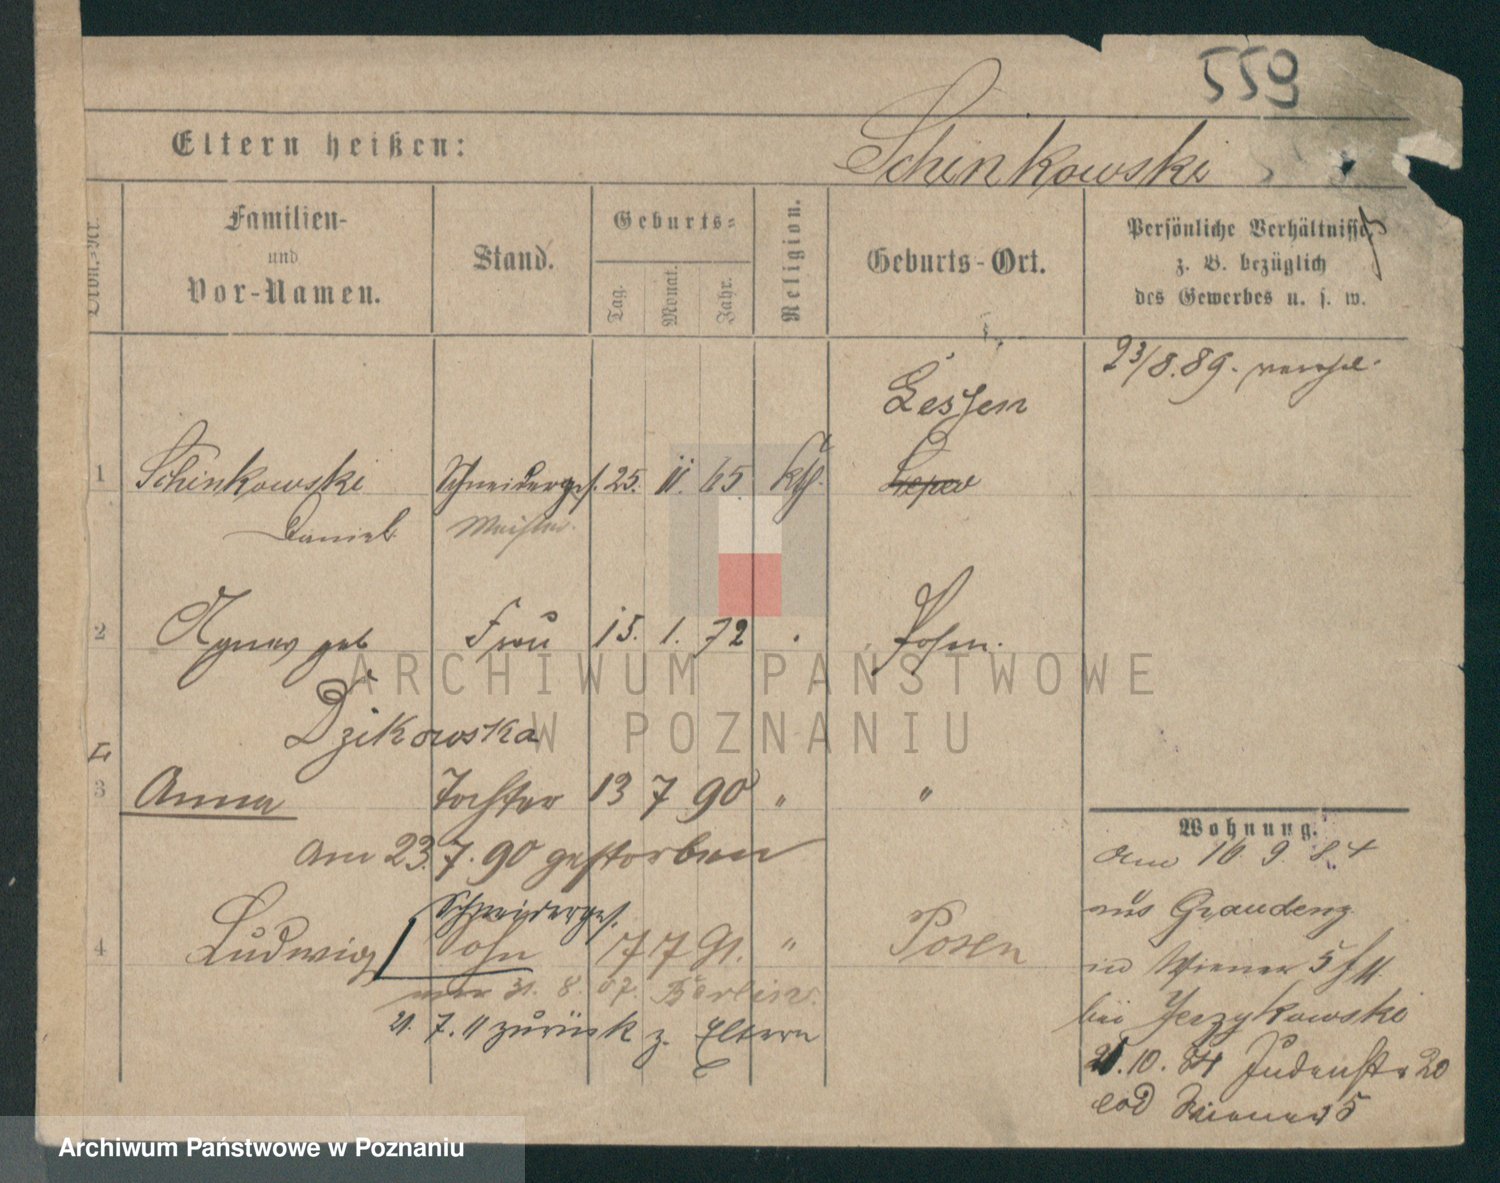 559
Eltern heißen:
Schinkowski
Familien-
und
Vor-Namen.
Stand.
Geburts-
Tag.
Monat.
Jahr.
Religion.
Geburts-Ort.
Persönliche Verhältnisse
z. B. bezüglich
des Gewerbes u. s. w.
23/8.89.
Lessen
1 Schinkowski Schneiderges. 25. 11. 65. kth.
Daniel Meister.
2 Agnes geb Frau 15. 1. 72 Posen.
Dzikowska
3 Anna Tochter 13 7 90 " "
am 23.7.90 gestorben
Schneiderges.
4 Ludwig Sohn 17 7 91. " Posen
31. 8. 07. Berlin.
21. 7. 11 zurück z. Eltern
Wohnung.
am 16 9 84
aus Graudenz
in Wiener 5
bei Jerzykowski
21.10.84 Judenstr 20
eod Wiener 5
ARCHIWUM PAŃSTWOWE
W POZNANIU
Archiwum Państwowe w Poznaniu